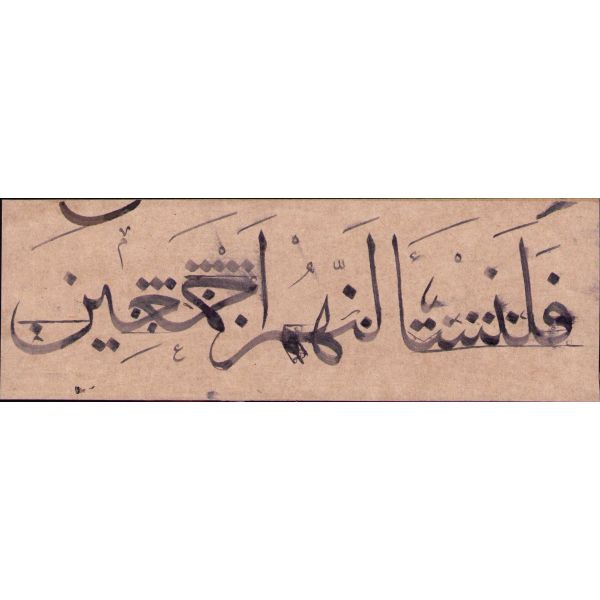 فَلَنَسْأَلَنَّهُمْ اَجْمَعِينَ